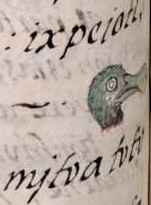 : ixpeiotl,
mjtva toto